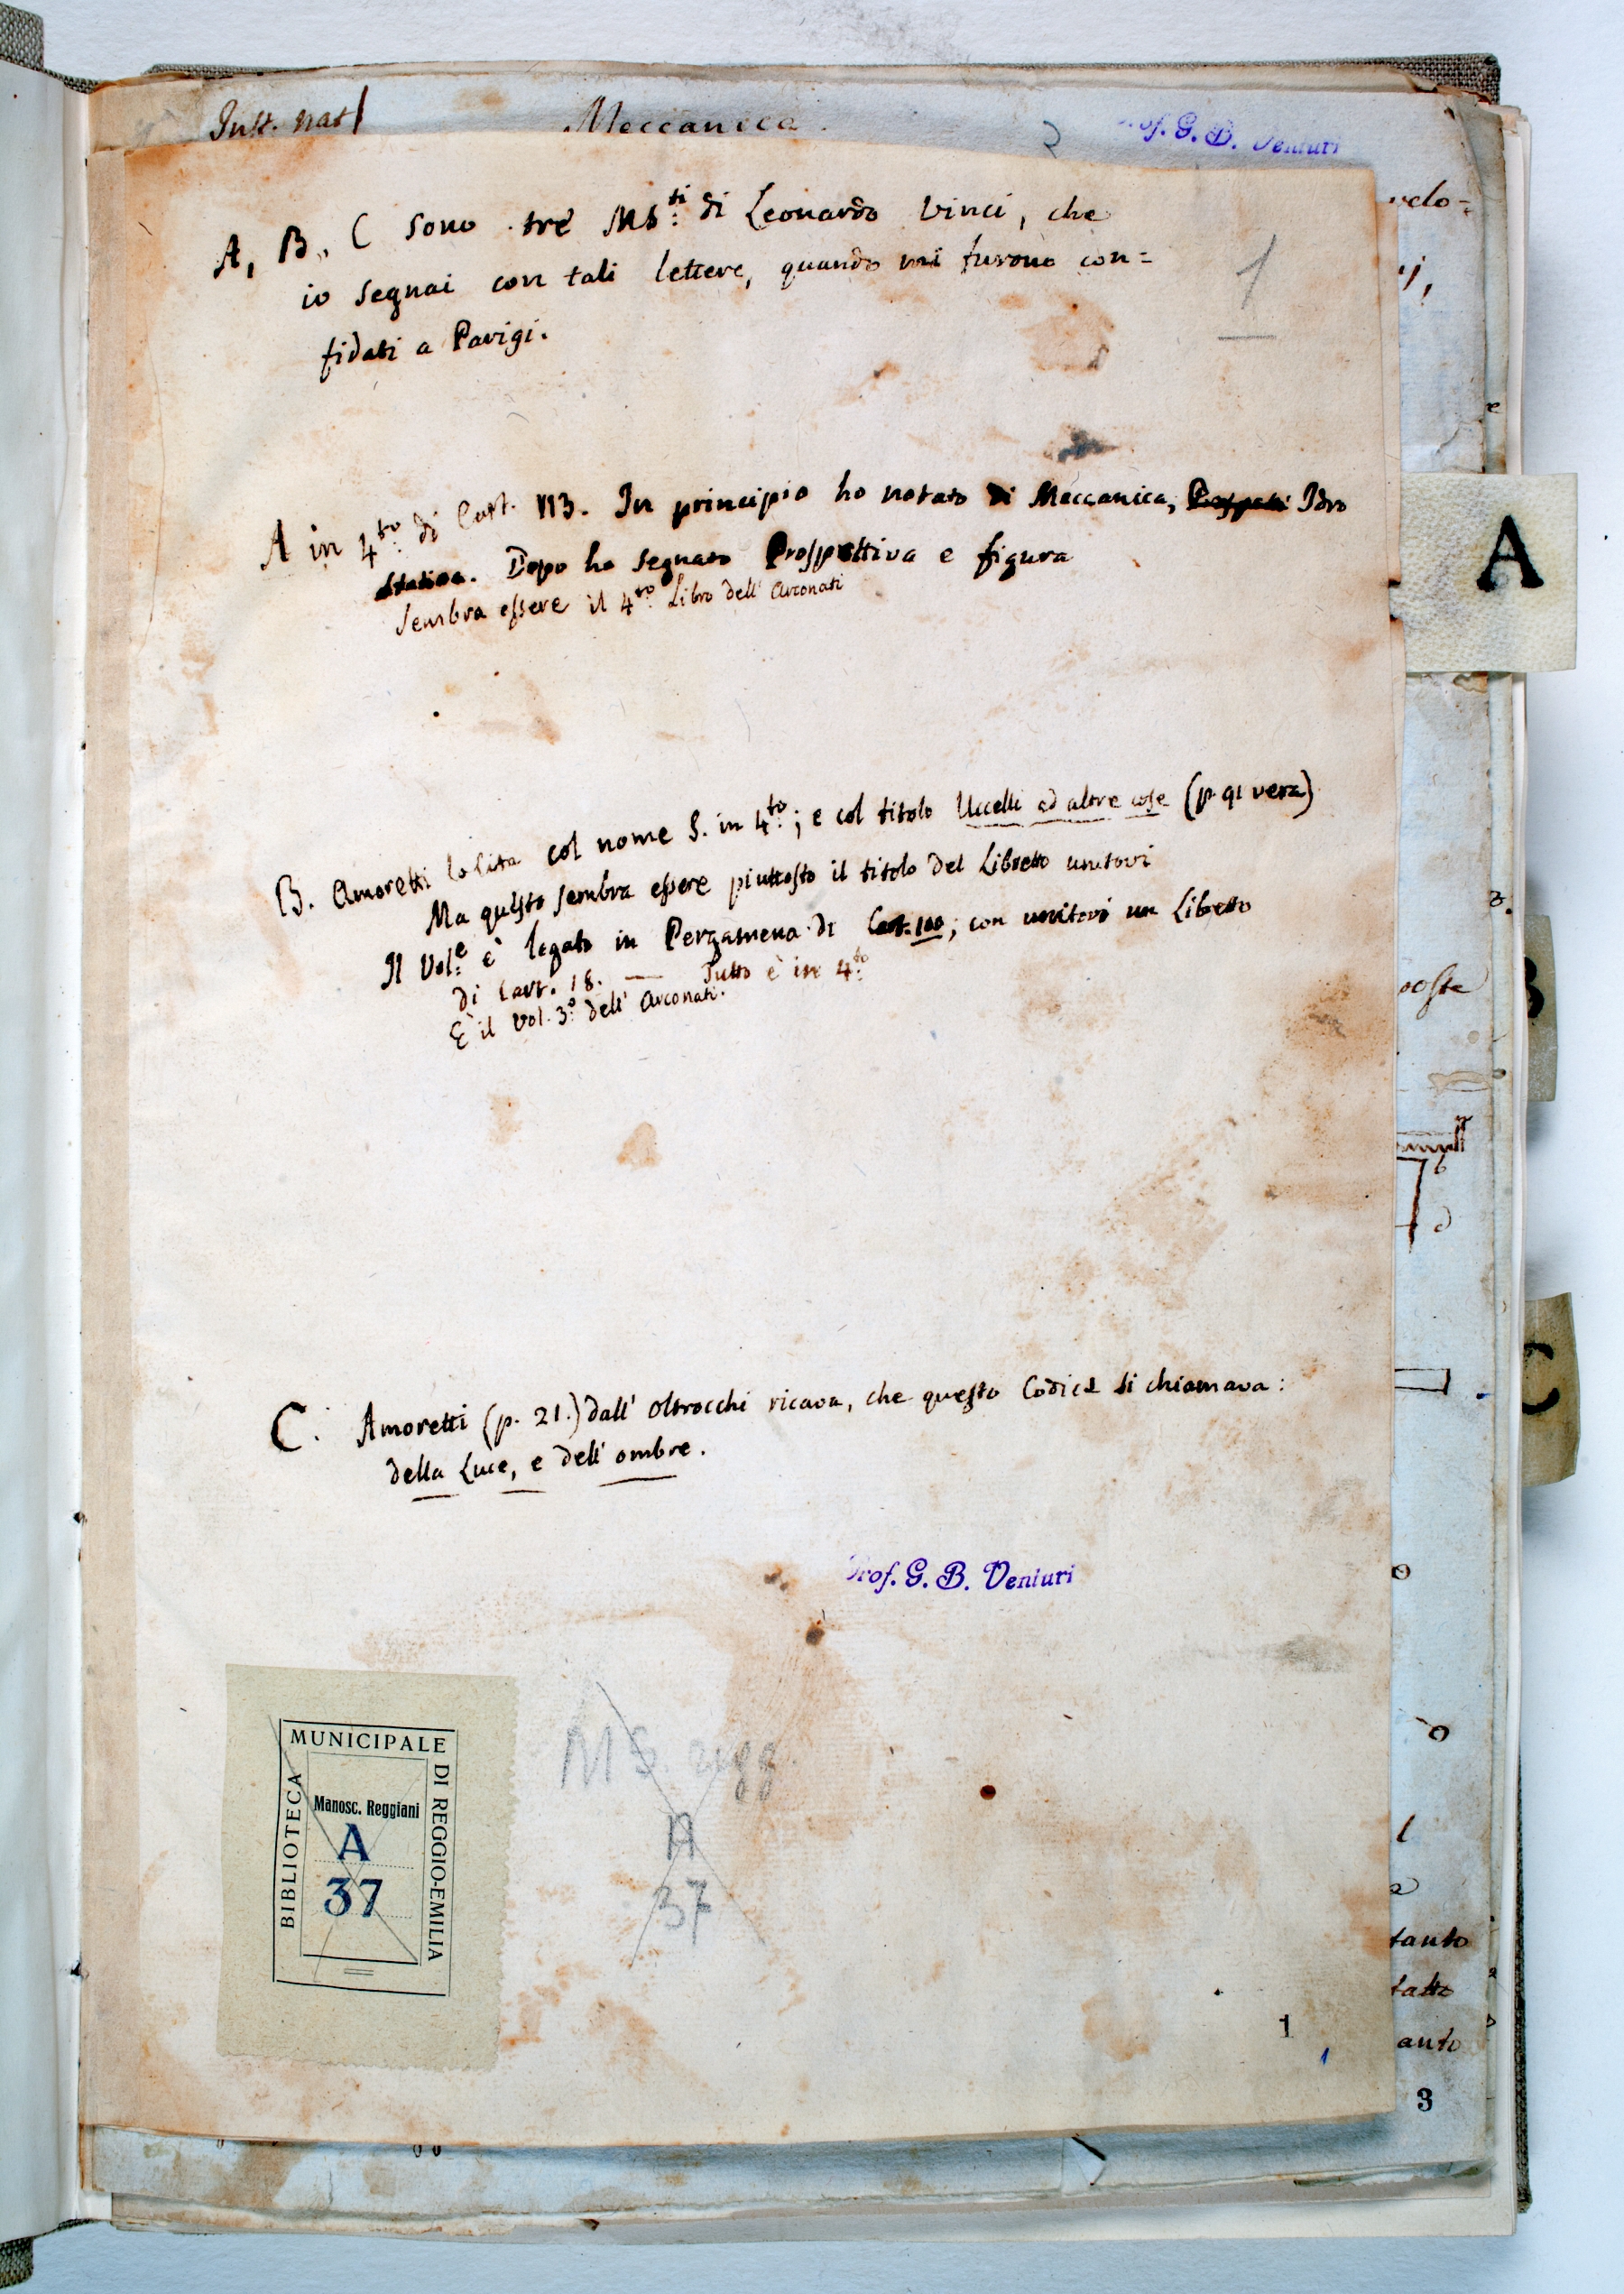 Inst. nat
Meccanica.
2
Prof. G. B. Venturi
A, B, C sono tre Ms:ti di Leonardo Vinci, che
io segnai con tali lettere, quando mi furono con=
fidati a Parigi.
1
A in 4to: di Cart. 113. In principio ho notato di Meccanica, Idro
statica. Dopo ho segnato Prospettiva e figura
sembra essere il 4to: Libro dell' Arconati
B. Amoretti lo cita col nome S. in 4to:; e col titolo Uccelli ed altre cose (p 91 vera)
Ma questo sembra essere piuttosto il titolo del Libretto unitovi
Il Vol:e è legato in Pergamena di Cart. 100; con unitovi un Libretto
di Cart. 18. — Tutto è in 4:to
È il Vol. 3:o dell' Arconati.
C. Amoretti (p. 21.) dall' Oltrocchi ricava, che questo Codice si chiamava:
della Luce, e dell' ombre.
Prof. G. B. Venturi
MUNICIPALE
BIBLIOTECA
DI REGGIO-EMILIA
Manosc. Reggiani
A
37
MS. regg.
A
37
1
1
velo=
A
B
C
z.
poste
b
d
tanto
anto
3